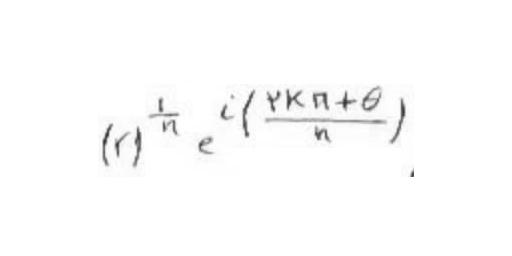 (r)^{\frac{1}{n}} e^{i(\frac{۲kπ+θ}{n})}